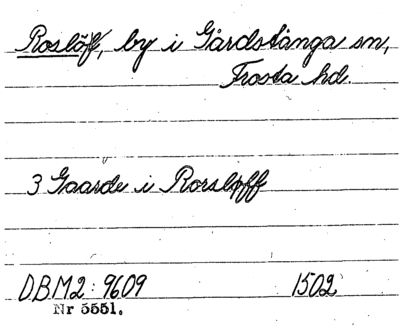 Roslöff, by i Gårdstånga sn,
Frosta hd.
3 Gaarde i Rorsløff
DBM2: 9609 1502
Nr 5551.